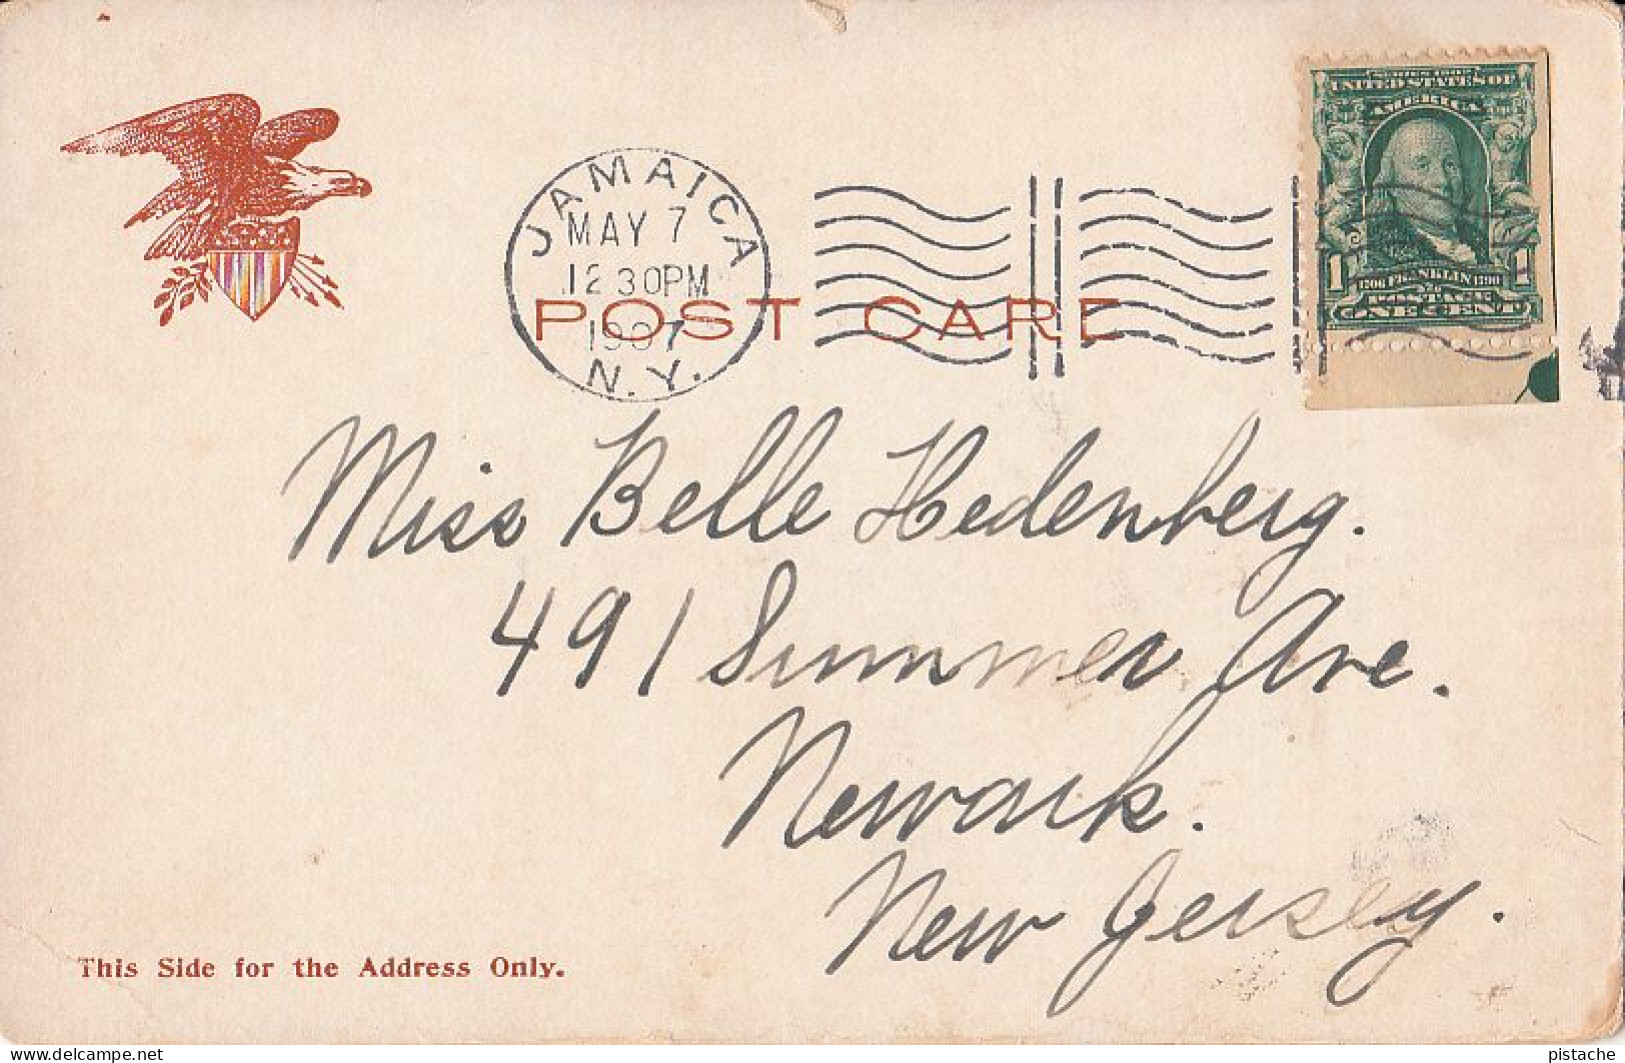 SERIES 1902
UNITED STATES OF
AMERICA
1 1706 FRANKLIN 1790 1
POSTAGE
ONE CENT
JAMAICA
MAY 7
12 30PM
1907
N.Y.
POST CARD
Miss Belle Hedenberg.
491 Summer Ave.
Newark.
New Jersey.
This Side for the Address Only.
delcampe.net
pistache